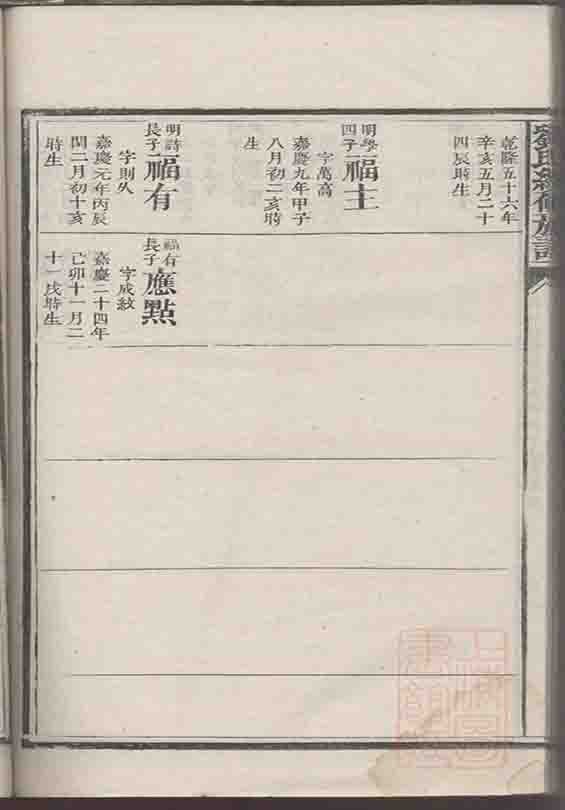 乾隆五十六年
辛亥五月二十
四辰時生
明學
四子
福主
字萬高
嘉慶九年甲子
八月初二亥時
生
明詩
長子
福有
字則久
嘉慶元年丙辰
閏二月初十亥
時生
福有
長子
應點
字成紋
嘉慶二十四年
己卯十一月二
十一戌時生